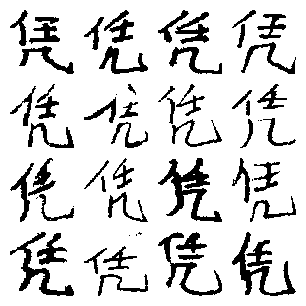 凭凭凭凭
凭凭凭凭
凭凭凭凭
凭凭凭凭